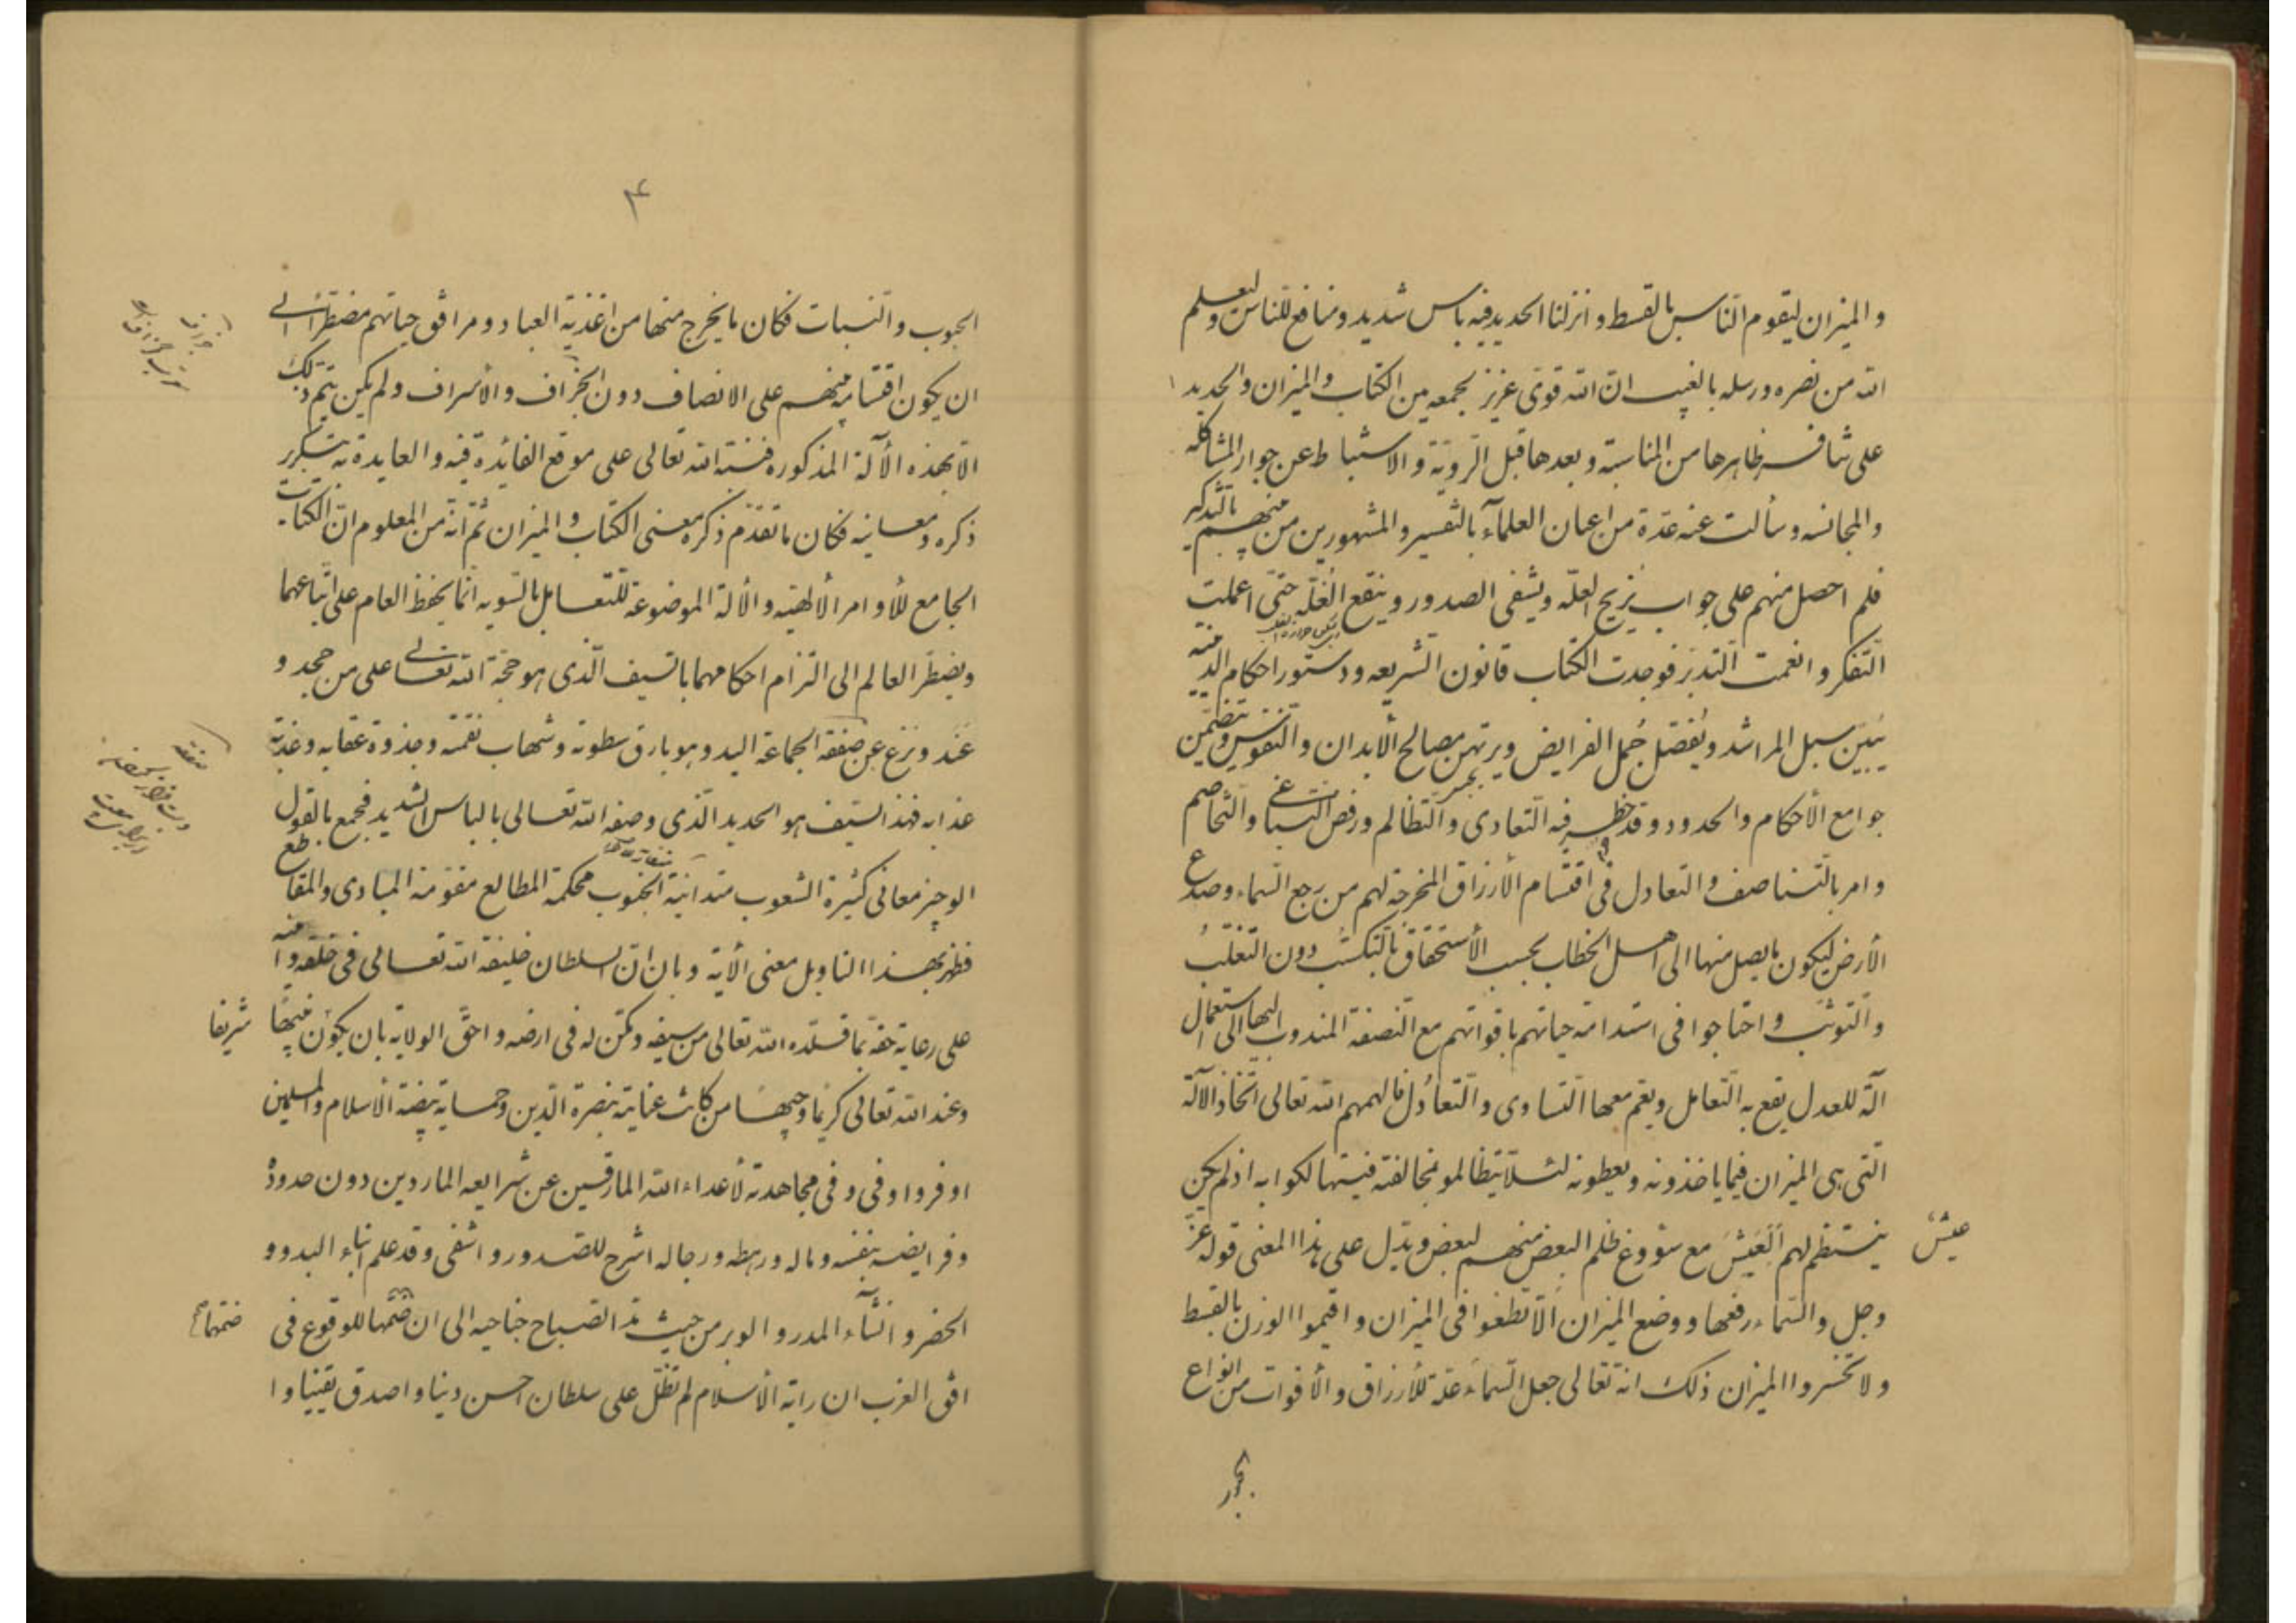 و الميزان ليقوم الناس بالقسط و انزلنا الحديد فيه باس شديد و منافع للناس و ليعلم
الله من نصره و رسله بالغيب ان الله قوى عزيز لجمعه من الكتاب و الميزان و الحديد
على تنافر ظاهرها من المناسبة و بعدها قبل الروية و الاستنباط عن جواز المشاكله
و المجانسه و سألت عنه عدة من اعيان العلماء بالتفسير و المشهورين من منهم بالتذكير
فلم احصل منهم على جواب يزيح العلّه و يشفى الصدور و ينقع الغلّه حتى اعملت
التفكر و انعمت التدبر فوجدت الكتاب قانون الشريعه و دستور احكام الدينيه
يبين سبل المراشد و يفصل جمل الفرايض و يرتهن مصالح الأبدان و النفوس و يتضمن
جوامع الأحكام و الحدود و قد حظر فيه التعادى و التظالم و رفض التباغى و التخاصم
و امر بالتناصف و التعادل فى اقتسام الأرزاق المخرجة لهم من رجع السماء و صدع
الأرض ليكون ما يصل منها الى اهل الخطاب بحسب الأستحقاق بالتكسب دون التغلب
و التوثب و احتاجوا فى استدامة حياتهم باقواتهم مع النصفة المندوب اليها الى استعمال
آلة للعدل يقع به التعامل و يعم معها التساوى و التعادل فالهمهم الله تعالى اتخاذ الآلة
التى هى الميزان فيما ياخذونه و يعطونه لئلا يتظالمو بمخالفته فيتهالكوا به اذ لم يكن
ينتظم لهم العيش مع سووغ ظلم البعض منهم لبعض و يدل على هذا المعنى قوله عز
عيش
و جل و السماء رفعها و وضع الميزان الا تطغوا فى الميزان و اقيموا الوزن بالقسط
و لا تخسروا الميزان ذلك انه تعالى جعل السماء علة للأرزاق و الأقوات من انواع
۴
الحبوب و النبات فكان ما يخرج منها من اغذية العباد و مرافق حياتهم مضطراً الى
ان يكون اقتسامه منهم على الانصاف دون الجزاف و الأسراف و لم يكن يتم ذلك
الا بهذه الألة المذكوره فنبه الله تعالى على موقع الفائدة فيه و العايدة به بتكرير
ذكره و معانيه فكان ما تقدم ذكره معنى الكتاب و الميزان ثم انه من المعلوم ان الكتاب
الجامع للأوامر الألهيه و الألة الموضوعة للتعامل بالتسويه انما يحفظ العام على اتباعهما
و يضطر العالم الى التزام احكامهما بالسيف الذى هو حجة الله تعالى على من جحد و
عند و نزع عن صفقة الجماعة اليد و هو بارق سطوته و شهاب نقمته و جذوة عقابه و عذبة
عذابه فهذ السيف هو الحديد الذى وصفه الله تعالى بالباس الشديد فجمع بالقول
الوجيز معانى كثيرة الشعوب متدانية الجنوب محكمة المطالع مقومة المبادى و المقاطع
فظهر بهذا التاويل معنى الأية و بان ان السلطان خليفة الله تعالى فى خلقه و امينه
على رعاية حقه بما قلده الله تعالى من سيفه و مكن له فى ارضه و احق الولاية بان يكون فيها
شريفا
و عند الله تعالى كريما وجيها من كانت عنايته بنصرة الدين و حماية بيضة الاسلام و المسلمين
اوفر و اوفى و فى مجاهدته لأعداء الله المارقين عن شرايعه الماردين دون حدوده
و فرايضه بنفسه و ماله و رهطه و رجاله اشرح للصدور و اشفى و قد علم ابناء البدو و
الحضر و انشاء المدر و الوبر من حيث مد الصباح جناحيه الى ان ضمها للوقوع فى
ضمهما
افق الغرب ان راية الأسلام لم تظل على سلطان احسن دينا و اصدق يقينا و ا